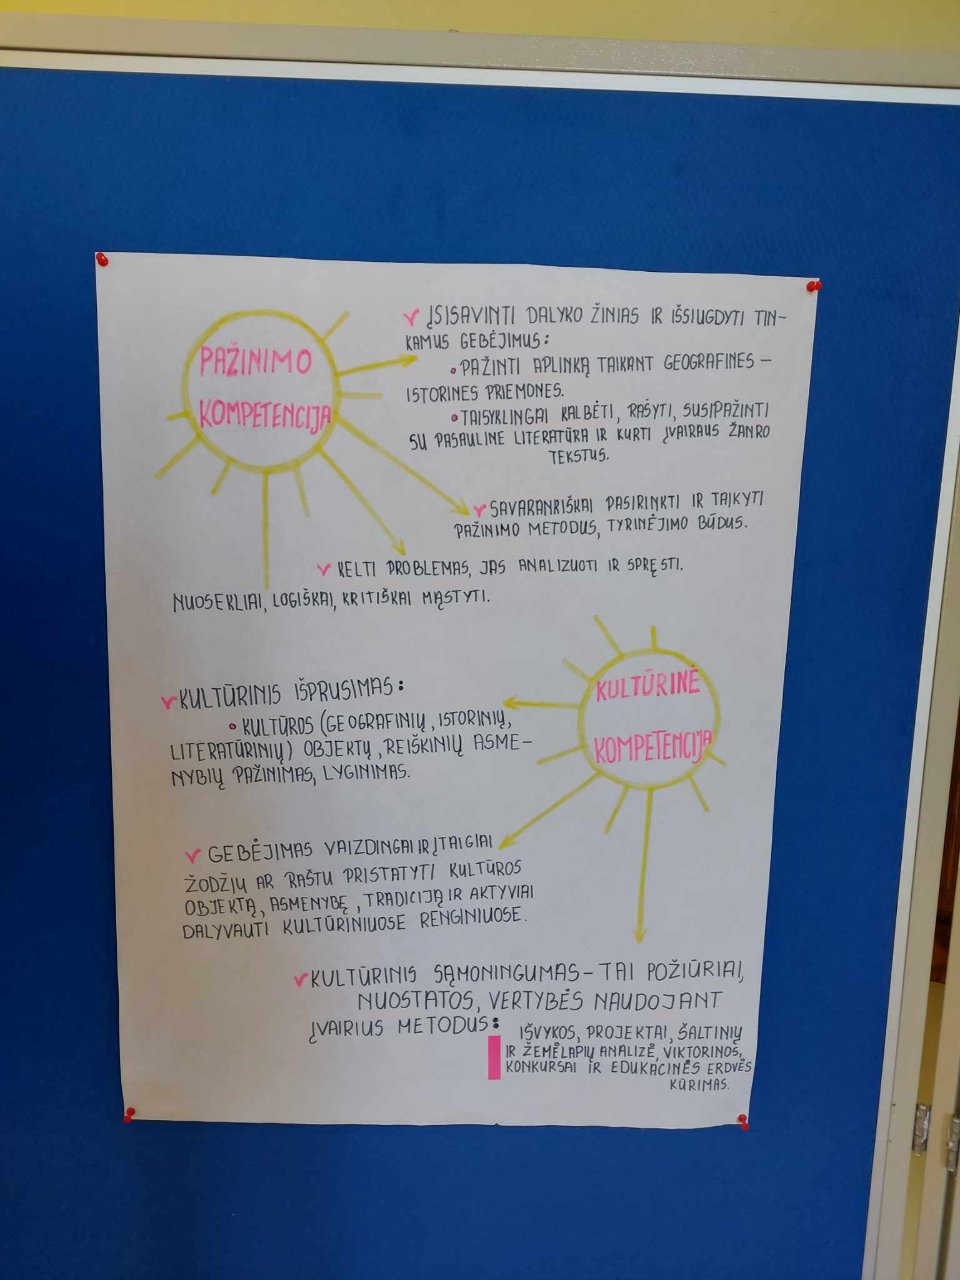 PAŽINIMO
KOMPETENCIJA
ĮSISAVINTI DALYKO ŽINIAS IR IŠSIUGDYTI TIN-
KAMUS GEBĖJIMUS:
• PAŽINTI APLINKĄ TAIKANT GEOGRAFINES –
ISTORINES PRIEMONES.
• TAISYKLINGAI KALBĖTI, RAŠYTI, SUSIPAŽINTI
SU PASAULINE LITERATŪRA IR KURTI ĮVAIRAUS ŽANRO
TEKSTUS.
SAVARANKIŠKAI PASIRINKTI IR TAIKYTI
PAŽINIMO METODUS, TYRINĖJIMO BŪDUS.
KELTI PROBLEMAS, JAS ANALIZUOTI IR SPRĘSTI.
NUOSEKLIAI, LOGIŠKAI, KRITIŠKAI MĄSTYTI.
KULTŪRINĖ
KOMPETENCIJA
KULTŪRINIS IŠPRUSIMAS:
• KULTŪROS (GEOGRAFINIŲ, ISTORINIŲ,
LITERATŪRINIŲ) OBJEKTŲ, REIŠKINIŲ ASME-
NYBIŲ PAŽINIMAS, LYGINIMAS.
GEBĖJIMAS VAIZDINGAI IR ĮTAIGIAI
ŽODŽIU AR RAŠTU PRISTATYTI KULTŪROS
OBJEKTĄ, ASMENYBĘ, TRADICIJĄ IR AKTYVIAI
DALYVAUTI KULTŪRINIUOSE RENGINIUOSE.
KULTŪRINIS SĄMONINGUMAS – TAI POŽIŪRIAI,
NUOSTATOS, VERTYBĖS NAUDOJANT
ĮVAIRIUS METODUS:
IŠVYKOS, PROJEKTAI, ŠALTINIŲ
IR ŽEMĖLAPIŲ ANALIZĖ, VIKTORINOS,
KONKURSAI IR EDUKACINĖS ERDVĖS
KŪRIMAS.